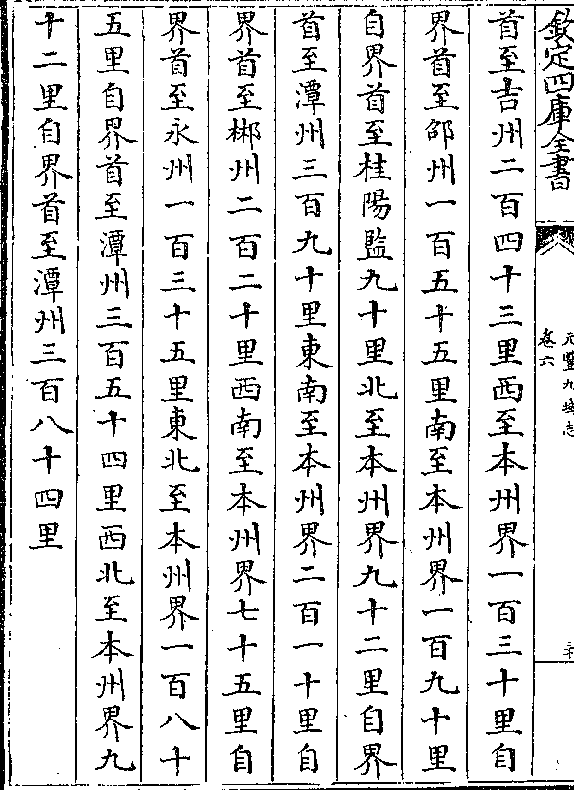 欽定四庫全書
元豐九域志
卷六
首至吉州二百四十三里西至本州界一百三十里自
界首至邵州一百五十五里南至本州界一百九十里
自界首至桂陽監九十里北至本州界九十二里自界
首至潭州三百九十里東南至本州界二百一十里自
界首至郴州二百二十里西南至本州界七十五里自
界首至永州一百三十五里東北至本州界一百八十
五里自界首至潭州三百五十四里西北至本州界九
十二里自界首至潭州三百八十四里